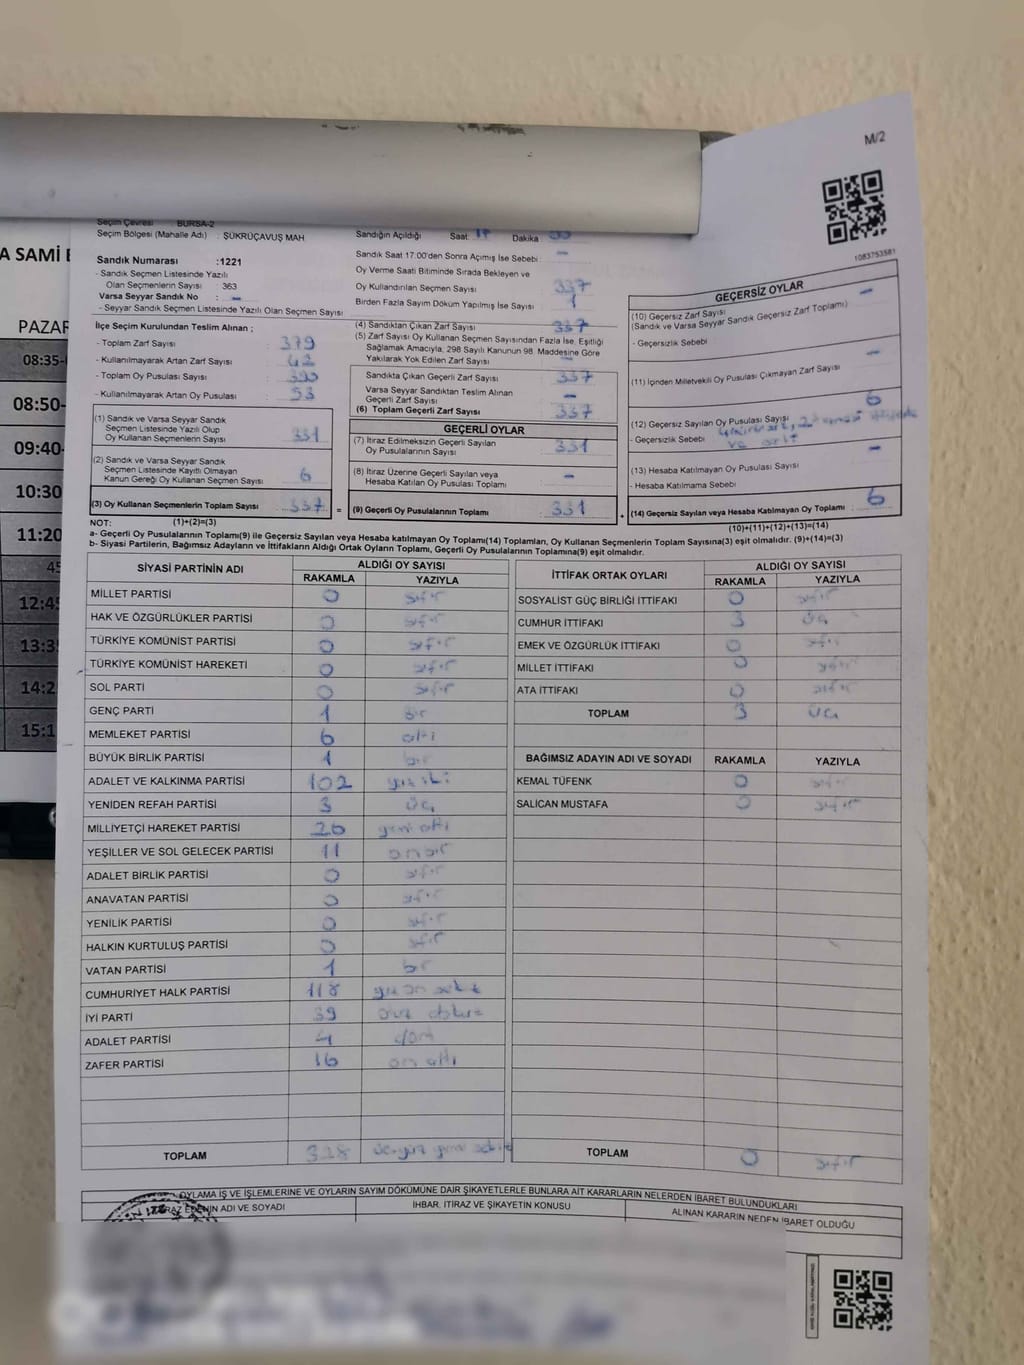 M/2
1083753581
A SAMİ
PAZAR
08:35-
08:50-
09:40-
10:30
11:20
45
12:45
13:3
14:2
15:1
Seçim Çevresi BURSA-2
Seçim Bölgesi (Mahalle Adı) : ŞÜKRÜÇAVUŞ MAH
Sandık Numarası :1221
- Sandık Seçmen Listesinde Yazılı
Olan Seçmenlerin Sayısı : 363
Varsa Seyyar Sandık No : -
- Seyyar Sandık Seçmen Listesinde Yazılı Olan Seçmen Sayısı
İlçe Seçim Kurulundan Teslim Alınan ;
- Toplam Zarf Sayısı : 379
- Kullanılmayarak Artan Zarf Sayısı : 42
- Toplam Oy Pusulası Sayısı : 390
- Kullanılmayarak Artan Oy Pusulası : 53
(1) Sandık ve Varsa Seyyar Sandık
Seçmen Listesinde Yazılı Olup
Oy Kullanan Seçmenlerin Sayısı 331
(2) Sandık ve Varsa Seyyar Sandık
Seçmen Listesinde Kayıtlı Olmayan
Kanun Gereği Oy Kullanan Seçmen Sayısı 6
(3) Oy Kullanan Seçmenlerin Toplam Sayısı 337 =
Sandığın Açıldığı Saat Dakika
Sandık Saat 17:00'den Sonra Açımış İse Sebebi : -
Oy Verme Saati Bitiminde Sırada Bekleyen ve
Oy Kullandırılan Seçmen Sayısı 337
Birden Fazla Sayım Döküm Yapılmış İse Sayısı 1
(4) Sandıktan Çıkan Zarf Sayısı 337
(5) Zarf Sayısı Oy Kullanan Seçmen Sayısından Fazla İse, Eşitliği
Sağlamak Amacıyla, 298 Sayılı Kanunun 98. Maddesine Göre
Yakılarak Yok Edilen Zarf Sayısı -
Sandıkta Çıkan Geçerli Zarf Sayısı 337
Varsa Seyyar Sandıktan Teslim Alınan
Geçerli Zarf Sayısı -
(6) Toplam Geçerli Zarf Sayısı 337
GEÇERLİ OYLAR
(7) İtiraz Edilmeksizin Geçerli Sayılan
Oy Pusulalarının Sayısı 331
(8) İtiraz Üzerine Geçerli Sayılan veya
Hesaba Katılan Oy Pusulası Toplamı -
(9) Geçerli Oy Pusulalarının Toplamı 331 +
GEÇERSİZ OYLAR
(10) Geçersiz Zarf Sayısı -
(Sandık ve Varsa Seyyar Sandık Geçersiz Zarf Toplamı)
- Geçersizlik Sebebi
(11) İçinden Milletvekili Oy Pusulası Çıkmayan Zarf Sayısı -
(12) Geçersiz Sayılan Oy Pusulası Sayısı 6
- Geçersizlik Sebebi
(13) Hesaba Katılmayan Oy Pusulası Sayısı -
- Hesaba Katılmama Sebebi
(14) Geçersiz Sayılan veya Hesaba Katılmayan Oy Toplamı : 6
NOT: (1)+(2)=(3) (10)+(11)+(12)+(13)=(14)
a- Geçerli Oy Pusulalarının Toplamı(9) ile Geçersiz Sayılan veya Hesaba katılmayan Oy Toplamı(14) Toplamları, Oy Kullanan Seçmenlerin Toplam Sayısına(3) eşit olmalıdır. (9)+(14)=(3)
b- Siyasi Partilerin, Bağımsız Adayların ve İttifakların Aldığı Ortak Oyların Toplamı, Geçerli Oy Pusulalarının Toplamına(9) eşit olmalıdır.
SİYASİ PARTİNİN ADI ALDIĞI OY SAYISI
RAKAMLA YAZIYLA
MİLLET PARTİSİ 0 sıfır
HAK VE ÖZGÜRLÜKLER PARTİSİ 0 sıfır
TÜRKİYE KOMÜNİST PARTİSİ 0 sıfır
TÜRKİYE KOMÜNİST HAREKETİ 0 sıfır
SOL PARTİ 0 sıfır
GENÇ PARTİ 1 Bir
MEMLEKET PARTİSİ 6 altı
BÜYÜK BİRLİK PARTİSİ 1 bir
ADALET VE KALKINMA PARTİSİ 102 yüz iki
YENİDEN REFAH PARTİSİ 3 üç
MİLLİYETÇİ HAREKET PARTİSİ 26 yirmi altı
YEŞİLLER VE SOL GELECEK PARTİSİ 11 on bir
ADALET BİRLİK PARTİSİ 0 sıfır
ANAVATAN PARTİSİ 0 sıfır
YENİLİK PARTİSİ 0 sıfır
HALKIN KURTULUŞ PARTİSİ 0 sıfır
VATAN PARTİSİ 1 bir
CUMHURİYET HALK PARTİSİ 118 yüz on sekiz
İYİ PARTİ 39 otuz dokuz
ADALET PARTİSİ 4 dört
ZAFER PARTİSİ 16 on altı
TOPLAM 328 üçyüz yirmi sekiz
İTTİFAK ORTAK OYLARI ALDIĞI OY SAYISI
RAKAMLA YAZIYLA
SOSYALİST GÜÇ BİRLİĞİ İTTİFAKI 0 sıfır
CUMHUR İTTİFAKI 3 üç
EMEK VE ÖZGÜRLÜK İTTİFAKI 0 sıfır
MİLLET İTTİFAKI 0 sıfır
ATA İTTİFAKI 0 sıfır
TOPLAM 3 üç
BAĞIMSIZ ADAYIN ADI VE SOYADI RAKAMLA YAZIYLA
KEMAL TÜFENK 0 sıfır
SALİCAN MUSTAFA 0 sıfır
TOPLAM 0 sıfır
OYLAMA İŞ VE İŞLEMLERİNE VE OYLARIN SAYIM DÖKÜMÜNE DAİR ŞİKAYETLERLE BUNLARA AİT KARARLARIN NELERDEN İBARET BULUNDUKLARI
İTİRAZ EDENİN ADI VE SOYADI İHBAR, İTİRAZ VE ŞİKAYETİN KONUSU ALINAN KARARIN NEDEN İBARET OLDUĞU